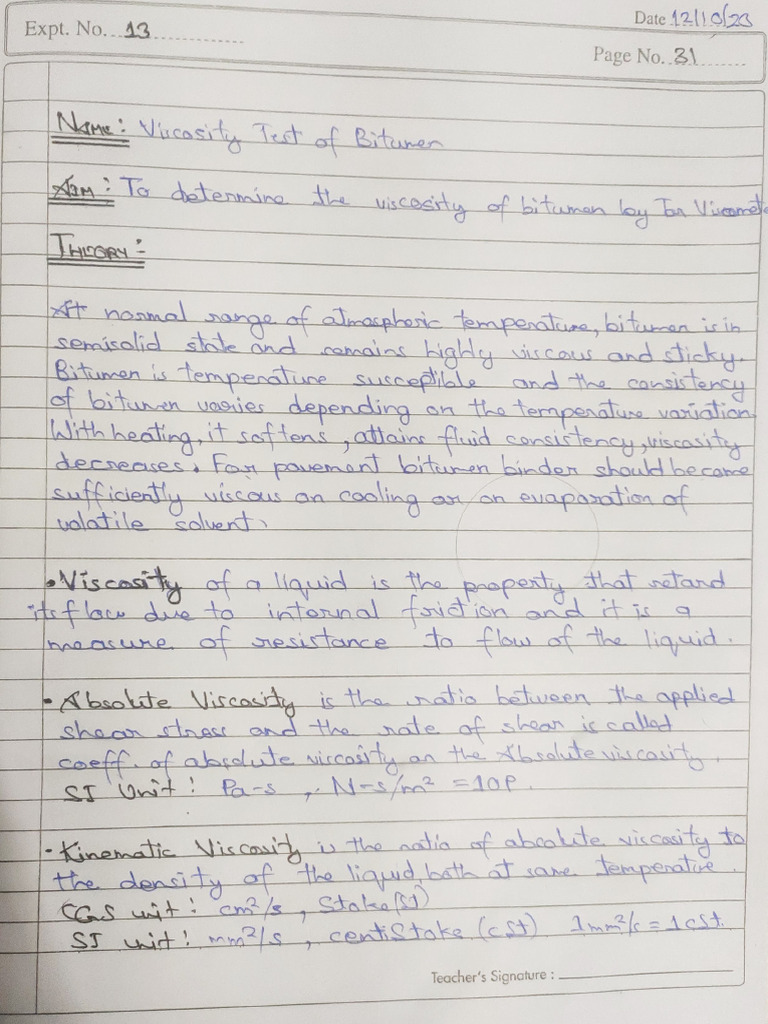 Date 12/10/23
Expt. No. 13
Page No. 31
Name: Viscosity Test of Bitumen
Aim: To determine the viscosity of bitumen by Tar
THEORY:
At normal range of atmospheric temperature, bitumen is in
semisolid state and remains highly viscous and sticky.
Bitumen is temperature susceptible and the consistency
of bitumen varies depending on the temperature variation
With heating, it softens, attains fluid consistency, viscosity
decreases. For pavement bitumen binder should become
sufficiently viscous on cooling or on evaporation of
volatile solvent.
• Viscosity of a liquid is the property that retard
its flow due to internal friction and it is a
measure of resistance to flow of the liquid.
• Absolute Viscosity is the ratio between the applied
shear stress and the rate of shear is called
coeff. of absolute viscosity or the Absolute viscosity.
SI Unit: Pa-s, N-s/m² = 10P.
• Kinematic Viscosity is the ratio of absolute viscosity to
the density of the liquid both at same temperature.
CGS unit: cm²/s, Stoke(St)
SI unit: mm²/s, centiStoke (cSt) 1mm²/s = 1cSt.
Teacher's Signature :